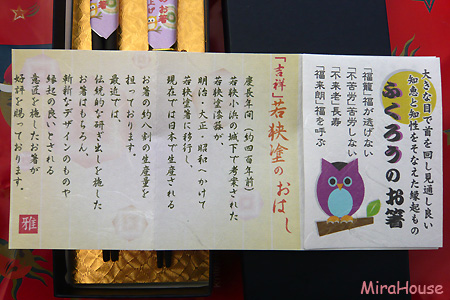 大きな目で首を回し見通し良い
知恵と知性をそなえた縁起もの
ふくろうのお箸
「福籠」福が逃げない
「不苦労」苦労しない
「不来老」長寿
「福来朗」福を呼ぶ
「吉祥」若狭塗のおはし
慶長年間（約四百年前）
若狭小浜の城下で考案された
若狭塗漆器が、
明治・大正・昭和へかけて
若狭塗箸に移行し、
現在では日本で生産される
お箸の約八割の生産量を
担っております。
最近では、
伝統的な研ぎ出しを施した
お箸はもちろん、
斬新なデザインのものや
縁起の良いとされる
意匠を施したお箸が
好評を賜っております。
雅
MiraHouse